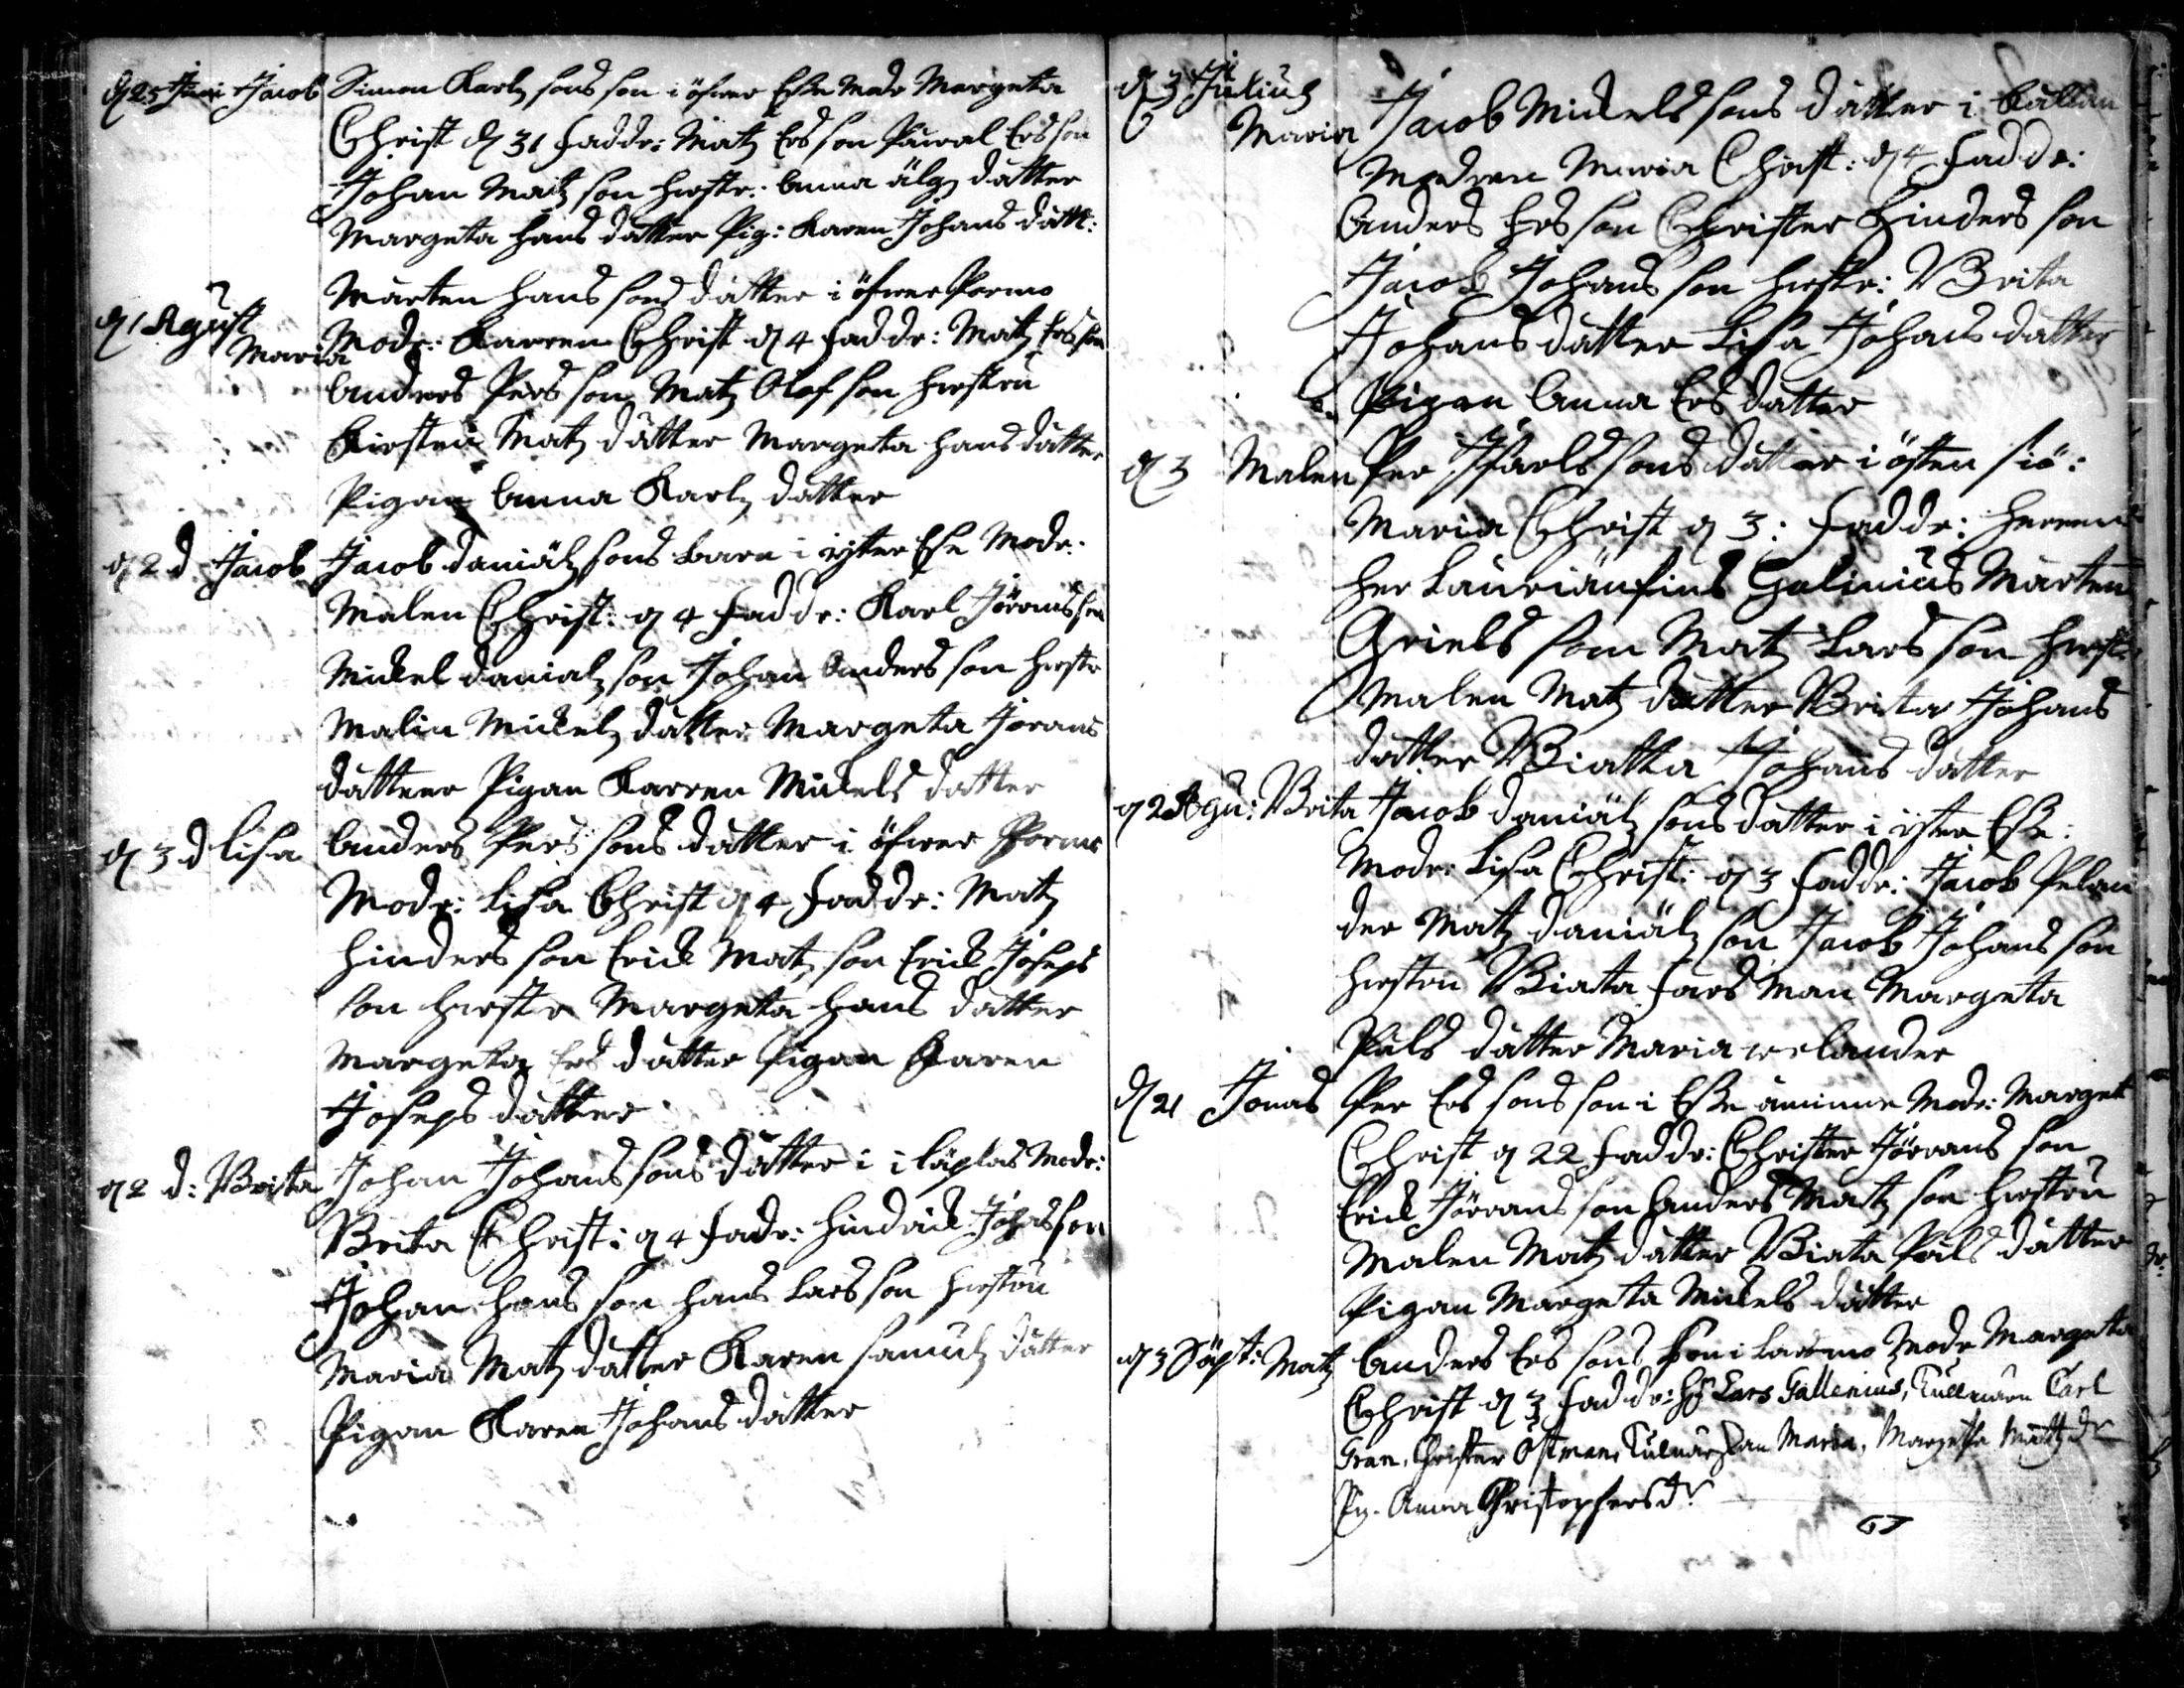 d 25 Juni Jacob Simon Karlz sons son i öfwer Esse Modr Margeta
Christ d 31 Faddr: Matz Ers son Påwal Ers son
Johan Matz son hustr: Anna älgz datter
Margeta Hans datter Pig: Karen Johans datt:
Mårten Hans sons datter i öfwer Pormo
d 1 Agust Maria
Modr: Karren Christ d 4 Faddr: Matz Ers son
Anders Pers son Matz Olof son hustru
Kirstin Matz datter Margeta Hans datter
Pigan Anna Karlz datter
d 2 d Jacob Jacob daniälz sons barn i ytter Esse Modr:
Malen Christ: d 4 Faddr: Karl Jörans son
Mickel danialz son Johan Anders son hustr
Malin Mickelz datter Margeta Jörans
datteer Pigan Karren Mickels datter
d 3 d Lisa Anders Pers sons datter i öfwer Pormo
Modr: Lisa Christ d 4 Faddr: Matz
Hinders son Erick Matz son Erick Joseps
son hustr Margeta Hans datter
Margeta Ers datter Pigan Karen
Joseps datter
d 2 d: Brita Johan Johans sons datter i Modr:
Brita Christ: d 4 Fadr: Hindrick Johas son
Johan Hans son Hans Lars son hustru
Maria Matz datter Karen Samuelz datter
Pigan Karen Johans datter
d 3 Julius
Maria Jacob Mickels sons datter i
Modren Maria Christ: d 4 Faddr:
Anders Ers son Christer Hinders son
Jacob Johans son hustr: Brita
Johans datter Lisa Johans datter
Pigan Anna Ers datter
d 3 Malen Per sons datter i östen siö:
Maria Christ d 3: Faddr:
Her Galinius Mårten
Griels son Matz Lars son hustr
Malen Matz datter Brita Johans
datter Biatta Johans datter
d 2 Agu: Brita Jacob daniälz sons datter i yter Esse:
Modr: Lisa Christ: d 3 Faddr: Jacob Pelan
der Matz daniälz son Jacob Johans son
hustru Biata Margeta
Påls datter Maria welander
d 21 Jonas Per Ers sons son i Esse åminne Modr: Marget
Christ d 22 Faddr: Christer Jörrans son
Erick Jörrans son Anders Matz son hustru
Malen Matz datter Biata Påls datter
Pigan Margeta Mickels datter
d 3 Säpt: Matz Anders Ers sons son i Larsmo Modr Margeta
Christ d 3 Faddr: Hr Lars Gallenius, Tullnären Carl
Gran, Christer Östman, Maria, Margetha Mattzdr
Pig. Anna Christophersdr